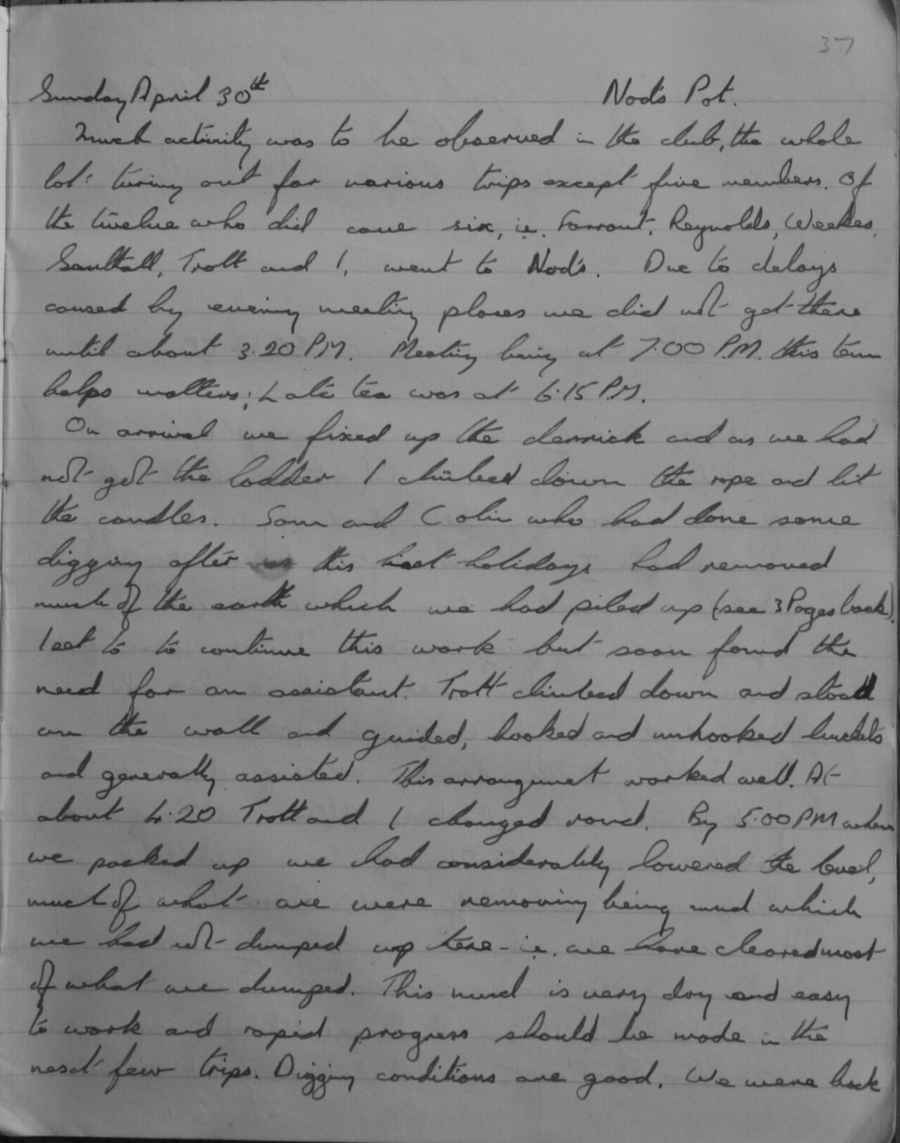 37
Sunday April 30th Nod's Pot.
Much activity was to be observed in the club, the whole
lot turing out for various trips except five members. Of
the twelve who did come six, i.e. Farrant, Reynolds, Weekes,
Trott and I, went to Nod's. Due to delays
caused by evening meeting places we did not get there
until about 3.20 PM. Meeting being at 7.00 P.M. this term
helps matters; Late tea was at 6.15 PM.
On arrival we fixed up the derrick and as we had
not got the ladder I climbed down the rope and lit
the candles. Sam and Colin who had done some
digging after this last holidays had removed
much of the earth which we had piled up (see 3 Pages back).
I set to to continue this work but soon found the
need for an assistant. Trott climbed down and stood
on the wall and guided, hooked and unhooked buckets
and generally assisted. This arrangment worked well. At
about 4.20 Trott and I changed round. By 5.00 PM when
we packed up we had considerably lowered the level,
much of what we were removing being mud which
we had not dumped up here - i.e. we have cleared most
of what we dumped. This mud is very dry and easy
to work and rapid progress should be made in the
next few trips. Digging conditions are good. We were back